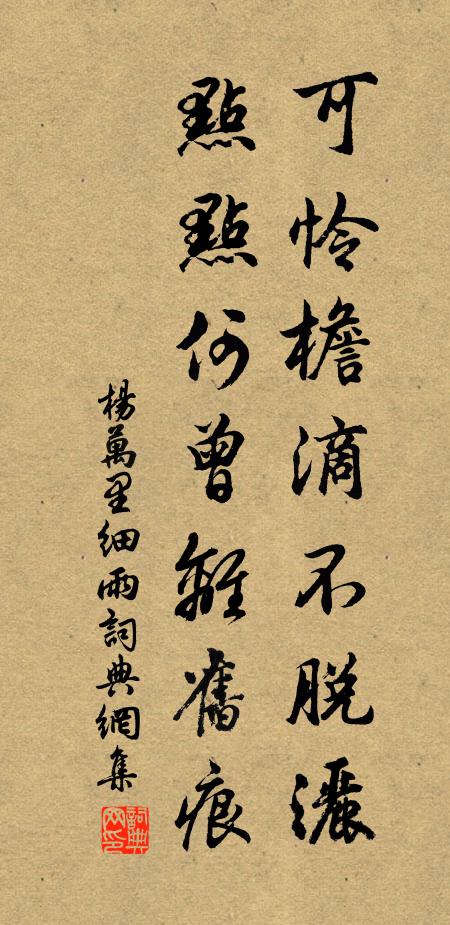 可怜檐滴不脱灑
點點何曾離舊痕
楊萬里細雨詞典網集
詞典網印